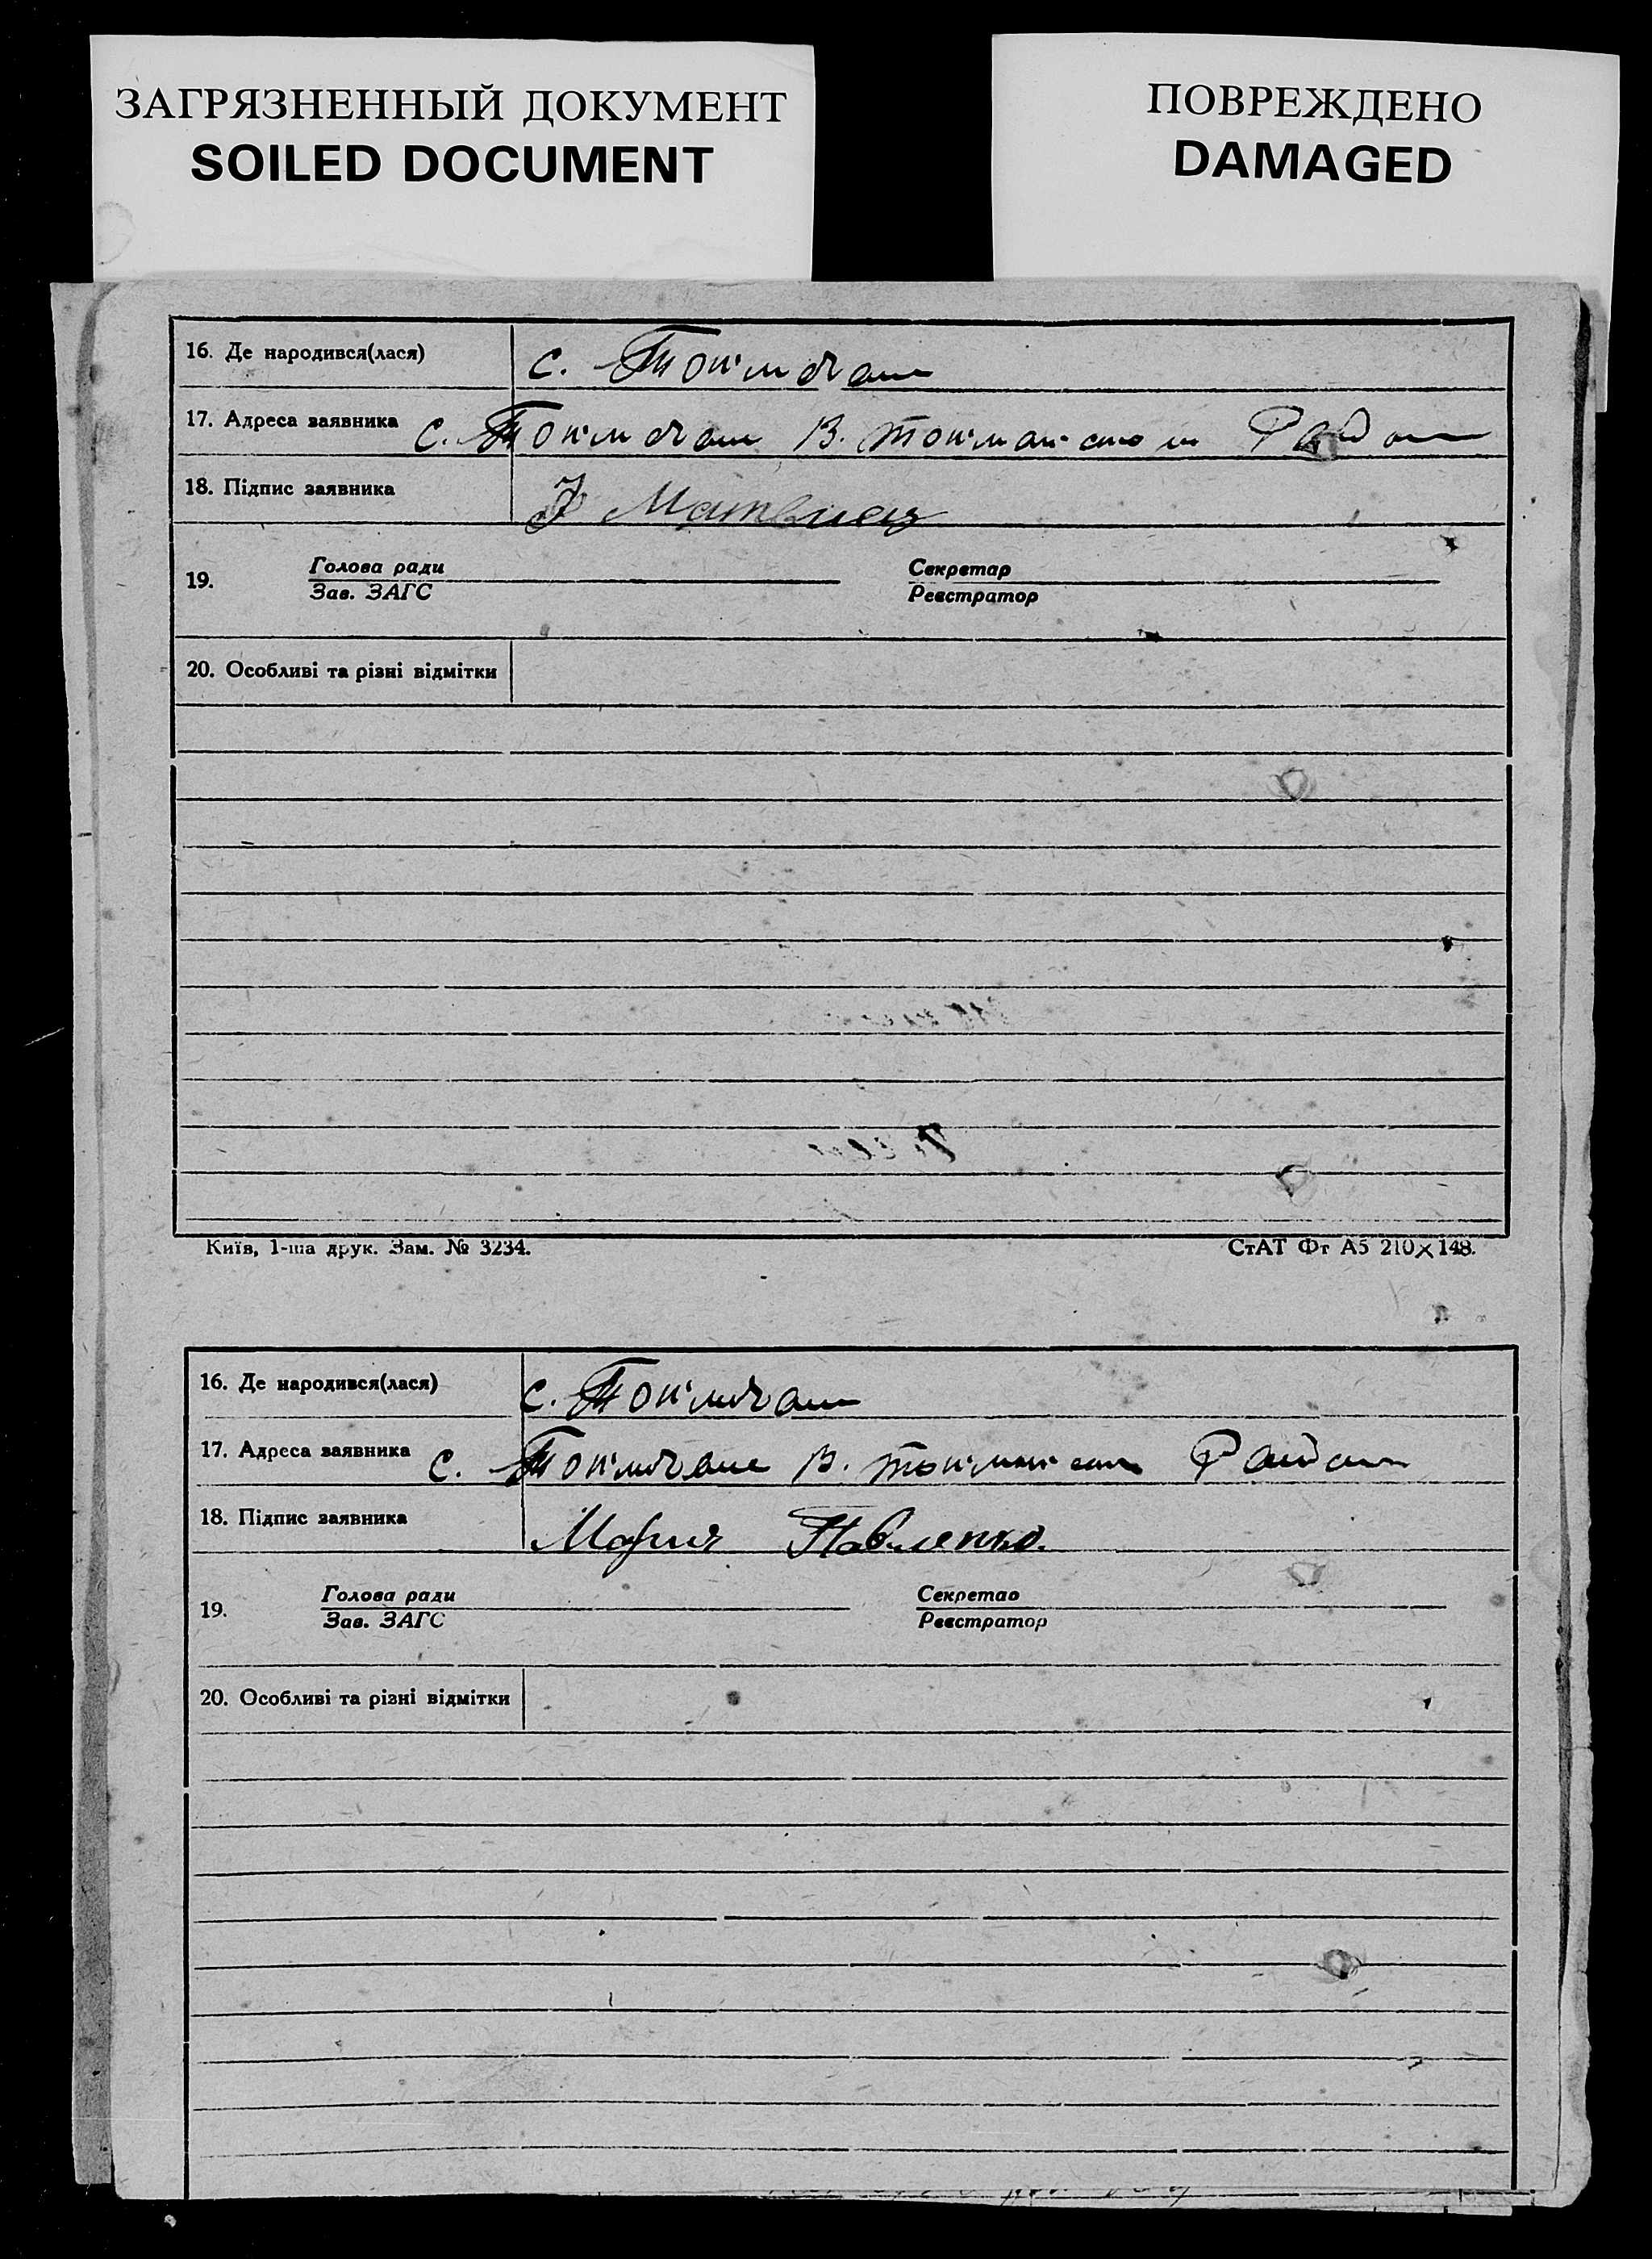 ЗАГРЯЗНЕННЫЙ ДОКУМЕНТ
SOILED DOCUMENT
ПОВРЕЖДЕНО
DAMAGED
16. Де народився(лася) с.
17. Адреса заявника с. В.
18. Підпис заявника
19. Голова ради Секретар
Зав. ЗАГС Реєстратор
20. Особливі та різні відмітки
Київ, 1-ша друк. Зам. № 3234. СтАТ Фт А5 210×148.
16. Де народився(лася) с.
17. Адреса заявника с. В.
18. Підпис заявника Мария Павленко.
19. Голова ради Секретар
Зав. ЗАГС Реєстратор
20. Особливі та різні відмітки